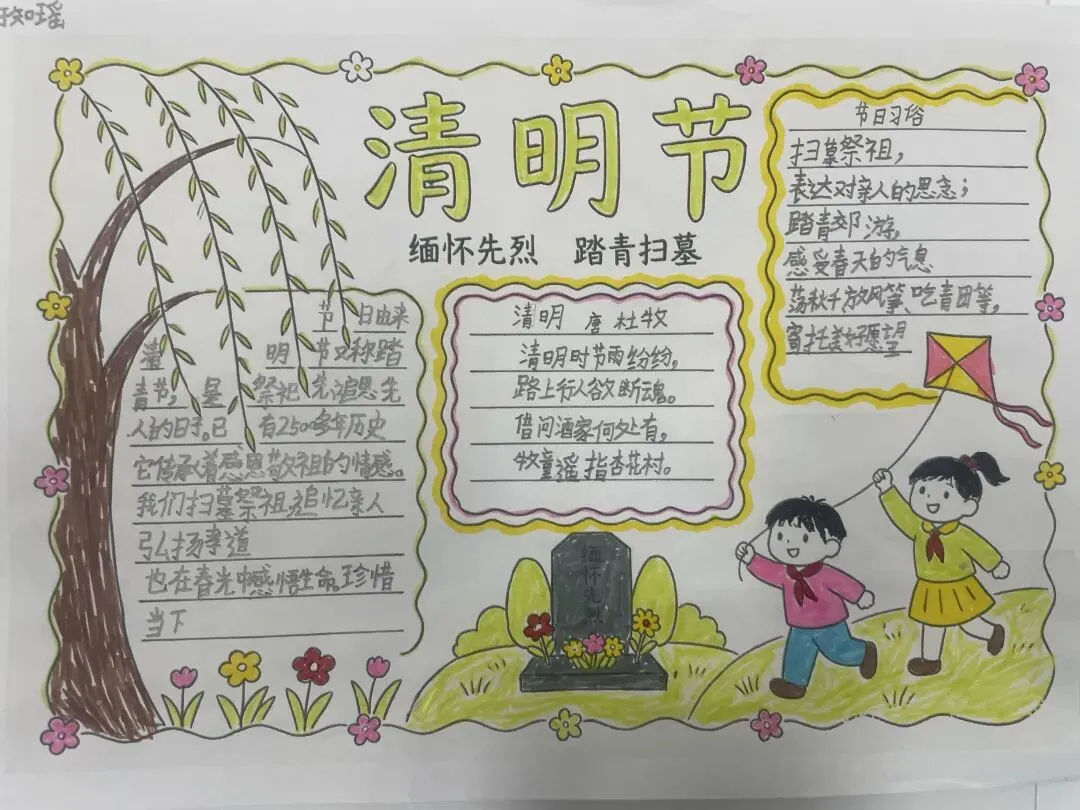 知瑶
清明节
缅怀先烈 踏青扫墓
节日由来
清明节又称踏
青节,是祭祀先追思先
人的日子。已有2500多年历史
它传承着感恩敬祖的情感。
我们扫墓祭祖,追忆亲人
弘扬孝道
也在春光中感悟生命,珍惜
当下
清明 唐 杜牧
清明时节雨纷纷,
路上行人欲断魂。
借问酒家何处有,
牧童遥指杏花村。
缅怀先烈
节日习俗
扫墓祭祖,
表达对亲人的思念;
踏青郊游,
感受春天的气息
荡秋千放风筝、吃青团等,
寄托美好愿望